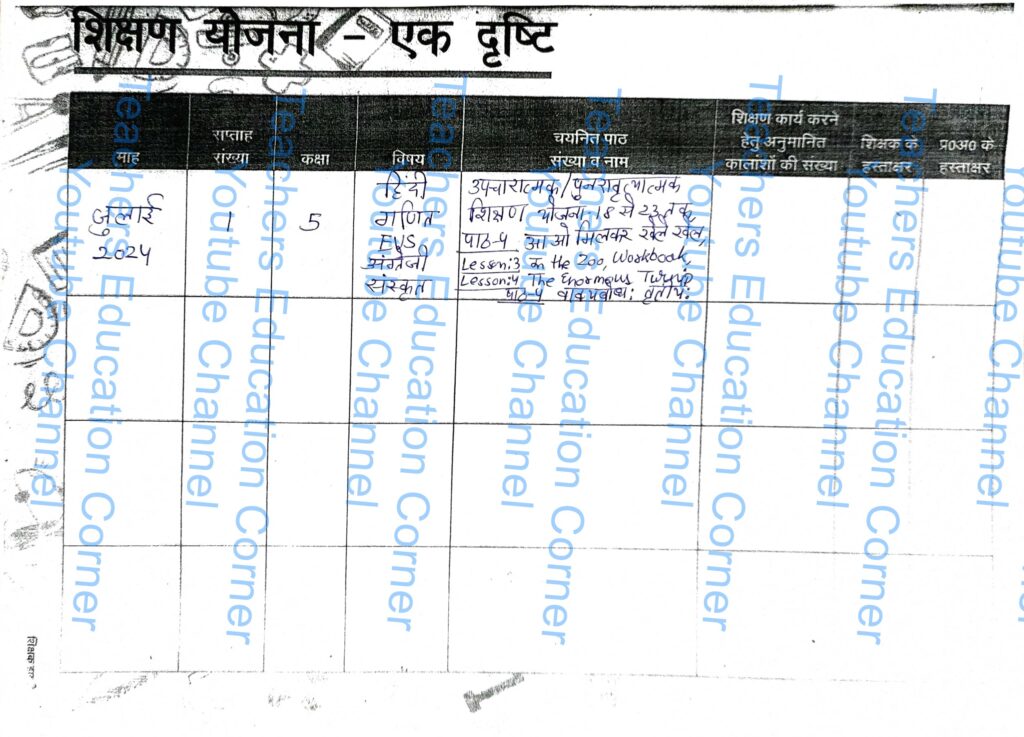 शिक्षण योजना – एक दृष्टि
माह
सप्ताह
संख्या
कक्षा
विषय
चयनित पाठ
संख्या व नाम
शिक्षण कार्य करने
हेतु अनुमानित
कालांशों की संख्या
शिक्षक के
हस्ताक्षर
प्र0अ0 के
हस्ताक्षर
जुलाई
2024
1
5
हिंदी
गणित
EVS
अंग्रेजी
संस्कृत
उपचारात्मक/पुनरावृत्यात्मक
शिक्षण योजना-18 से 22 तक
पाठ-4 आओ मिलकर खेलें खेल,
Lesson:3 In the Zoo, Workbook,
Lesson:4 The Enormous Turnip
पाठ-4 तृतीयः
शिक्षक
Teachers Education Corner
Youtube Channel
Teachers Education Corner
Youtube Channel
Teachers Education Corner
Youtube Channel
Teachers Education Corner
Youtube Channel
Teachers Education Corner
Youtube Channel
Teachers Education Corner
Youtube Channel